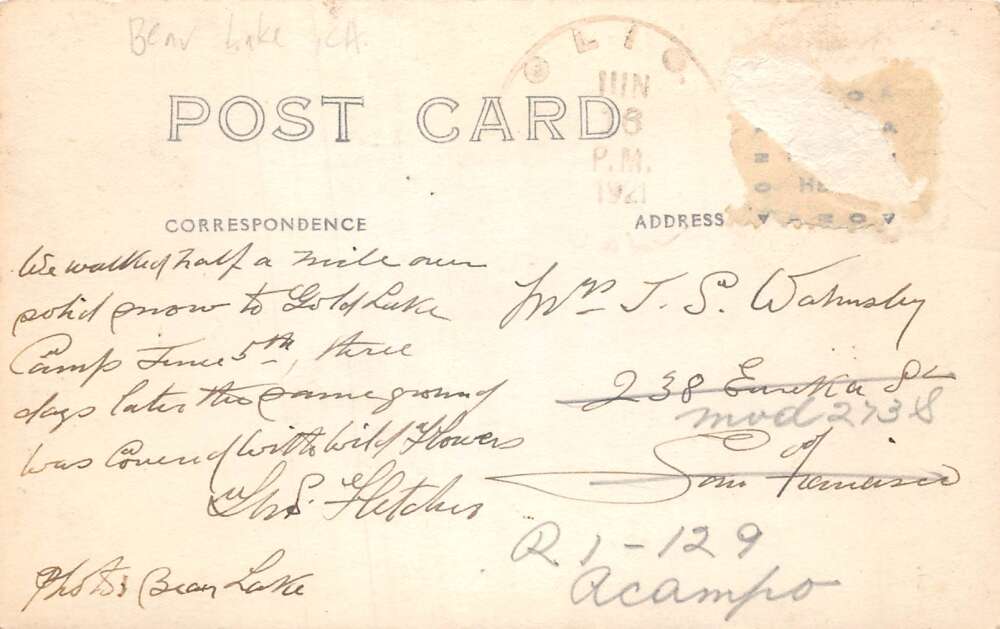 Bear Lake, CA.
CLIO
JUN
8
P.M.
1921
POST CARD
CORRESPONDENCE
ADDRESS
We walked half a mile over
solid snow to Gold Lake
Camp June 5th, three
days later the same ground
was Covered with Wild Flowers
Thos. Fletcher
Photo Bear Lake
Mrs J. S. Walmsley
238 Eureka St
mod 273 S
San Francisco
R 1-129
Acampo